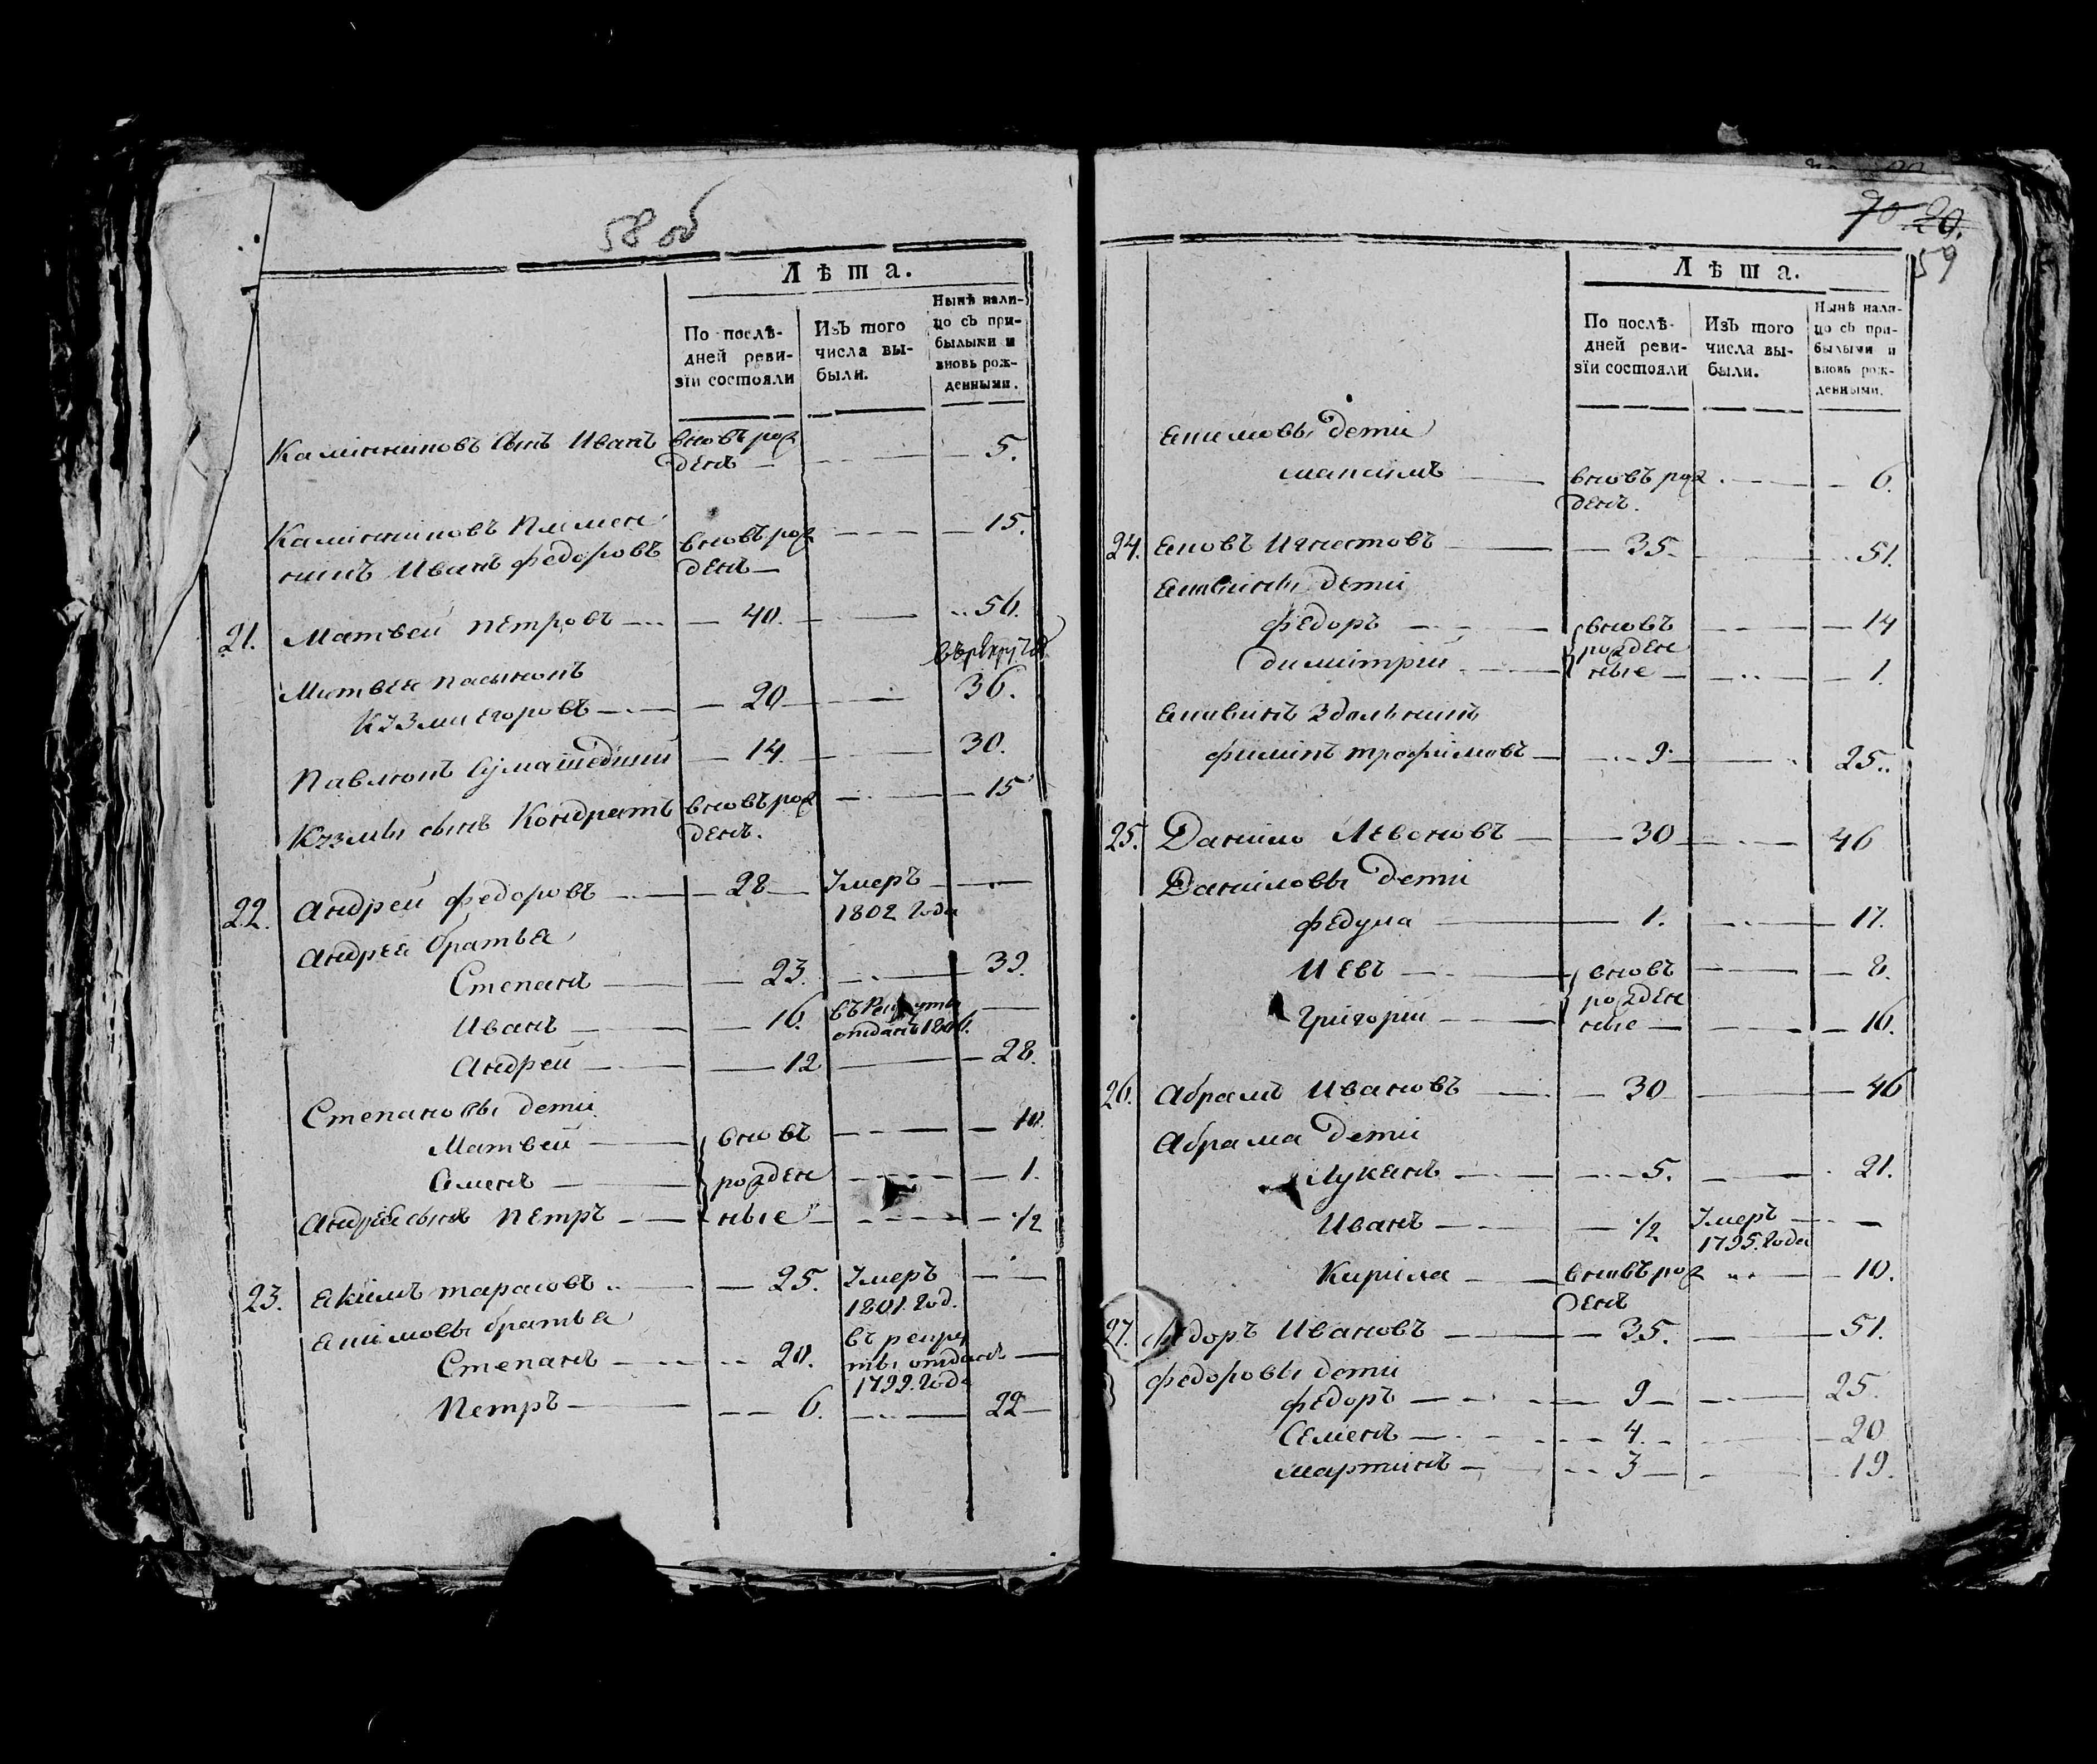 58 об
Лѣта.
По послѣ-
дней реви-
зіи состояли
Изъ того
числа вы-
были.
Нынѣ нали-
цо съ при-
былыми и
вновь рож-
денными.
Калинниковъ сынъ Иванъ вновъ рож 5.
денъ
Калинниковъ племен 15.
никъ Иванъ федоровъ вновъ рож
денъ
21. Матвей петровъ 40. 56.
Матвея пасынокъ
кузма егоровъ 20 36.
Павлюкъ сумашедший 14 30.
Кузмы сынъ Кондратъ вновъ рож 15
денъ.
22. андрей федоровъ 28 умеръ
1802 года
андрея братья
Степанъ 23. 39.
Иванъ 16. въ рекруты
отданъ 1806.
андрей 12 28.
Степановы дети
Матвей вновъ 10
Семенъ рожден 1.
андрея сынъ петръ ные 1/2
23. екимъ тарасовъ 25. умеръ
1801. год.
екимовы братья
Степанъ 20. въ рекру
ты отданъ
1799. года
Петръ 6. 22
70 20.
59
Лѣта.
По послѣ-
дней реви-
зіи состояли
Изъ того
числа вы-
были.
Нынѣ нали-
цо съ при-
былыми и
вновь рож-
денными.
екимовы дети
максимъ вновъ рож 6.
денъ.
24. 35. 51.
дети
федоръ вновъ 14
рожден
димитрий ные 1.
филипъ трофимовъ 9. 25.
25. Данило Левоновъ 30 46
Даниловы дети
федула 1. 17.
Иевъ вновъ 8.
рожден
григорий ные 16.
26. абрамъ Ивановъ 30 46
абрама дети
Лукянъ 5. 21.
Иванъ 1/2 умеръ
1795. года
Кирила вновъ рож 10.
денъ
27. федоръ Ивановъ 35. 51.
федоровы дети
федоръ 9 25.
Семенъ 4. 20
мартинъ 3 19.